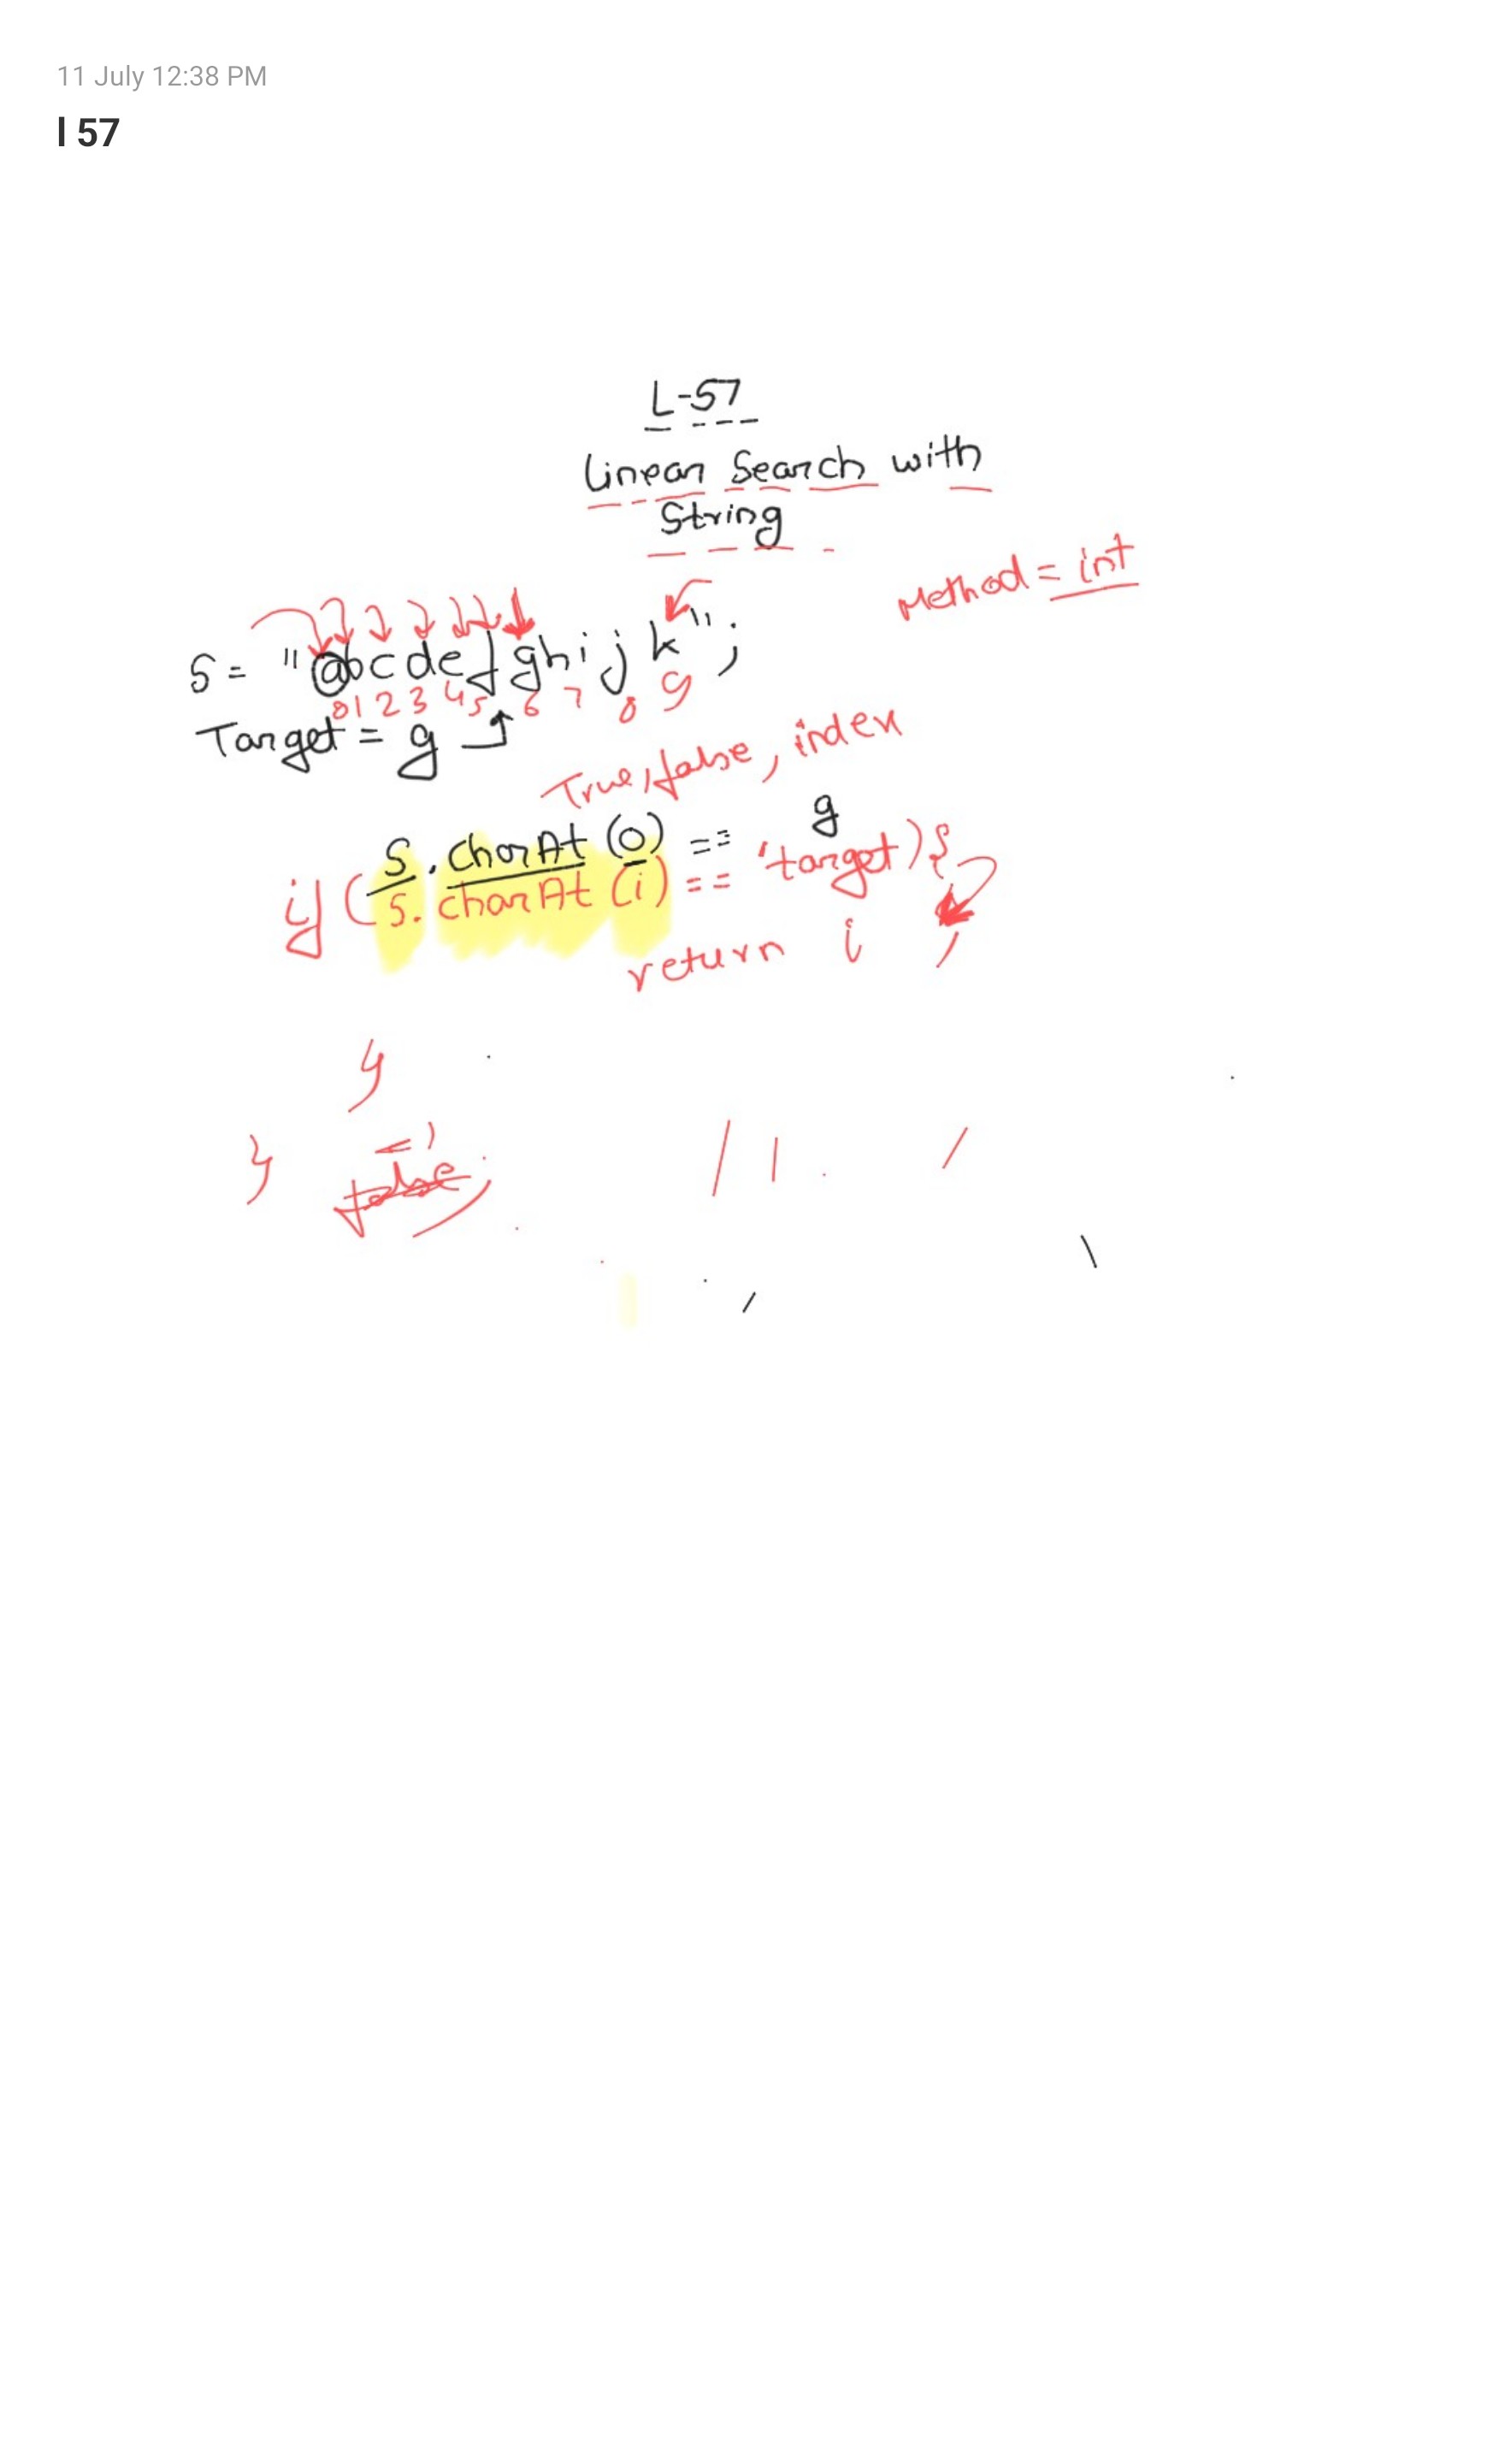 11 July 12:38 PM
l 57
L-57
Linear Search with
String
Method = int
S = "abcdefghijk";
0 1 2 3 4 5 6 7 8 9
Target = g
True, false, index
S.charAt (0) == g
if (S.charAt (i) == 'target){
return i ;
}
}
false;